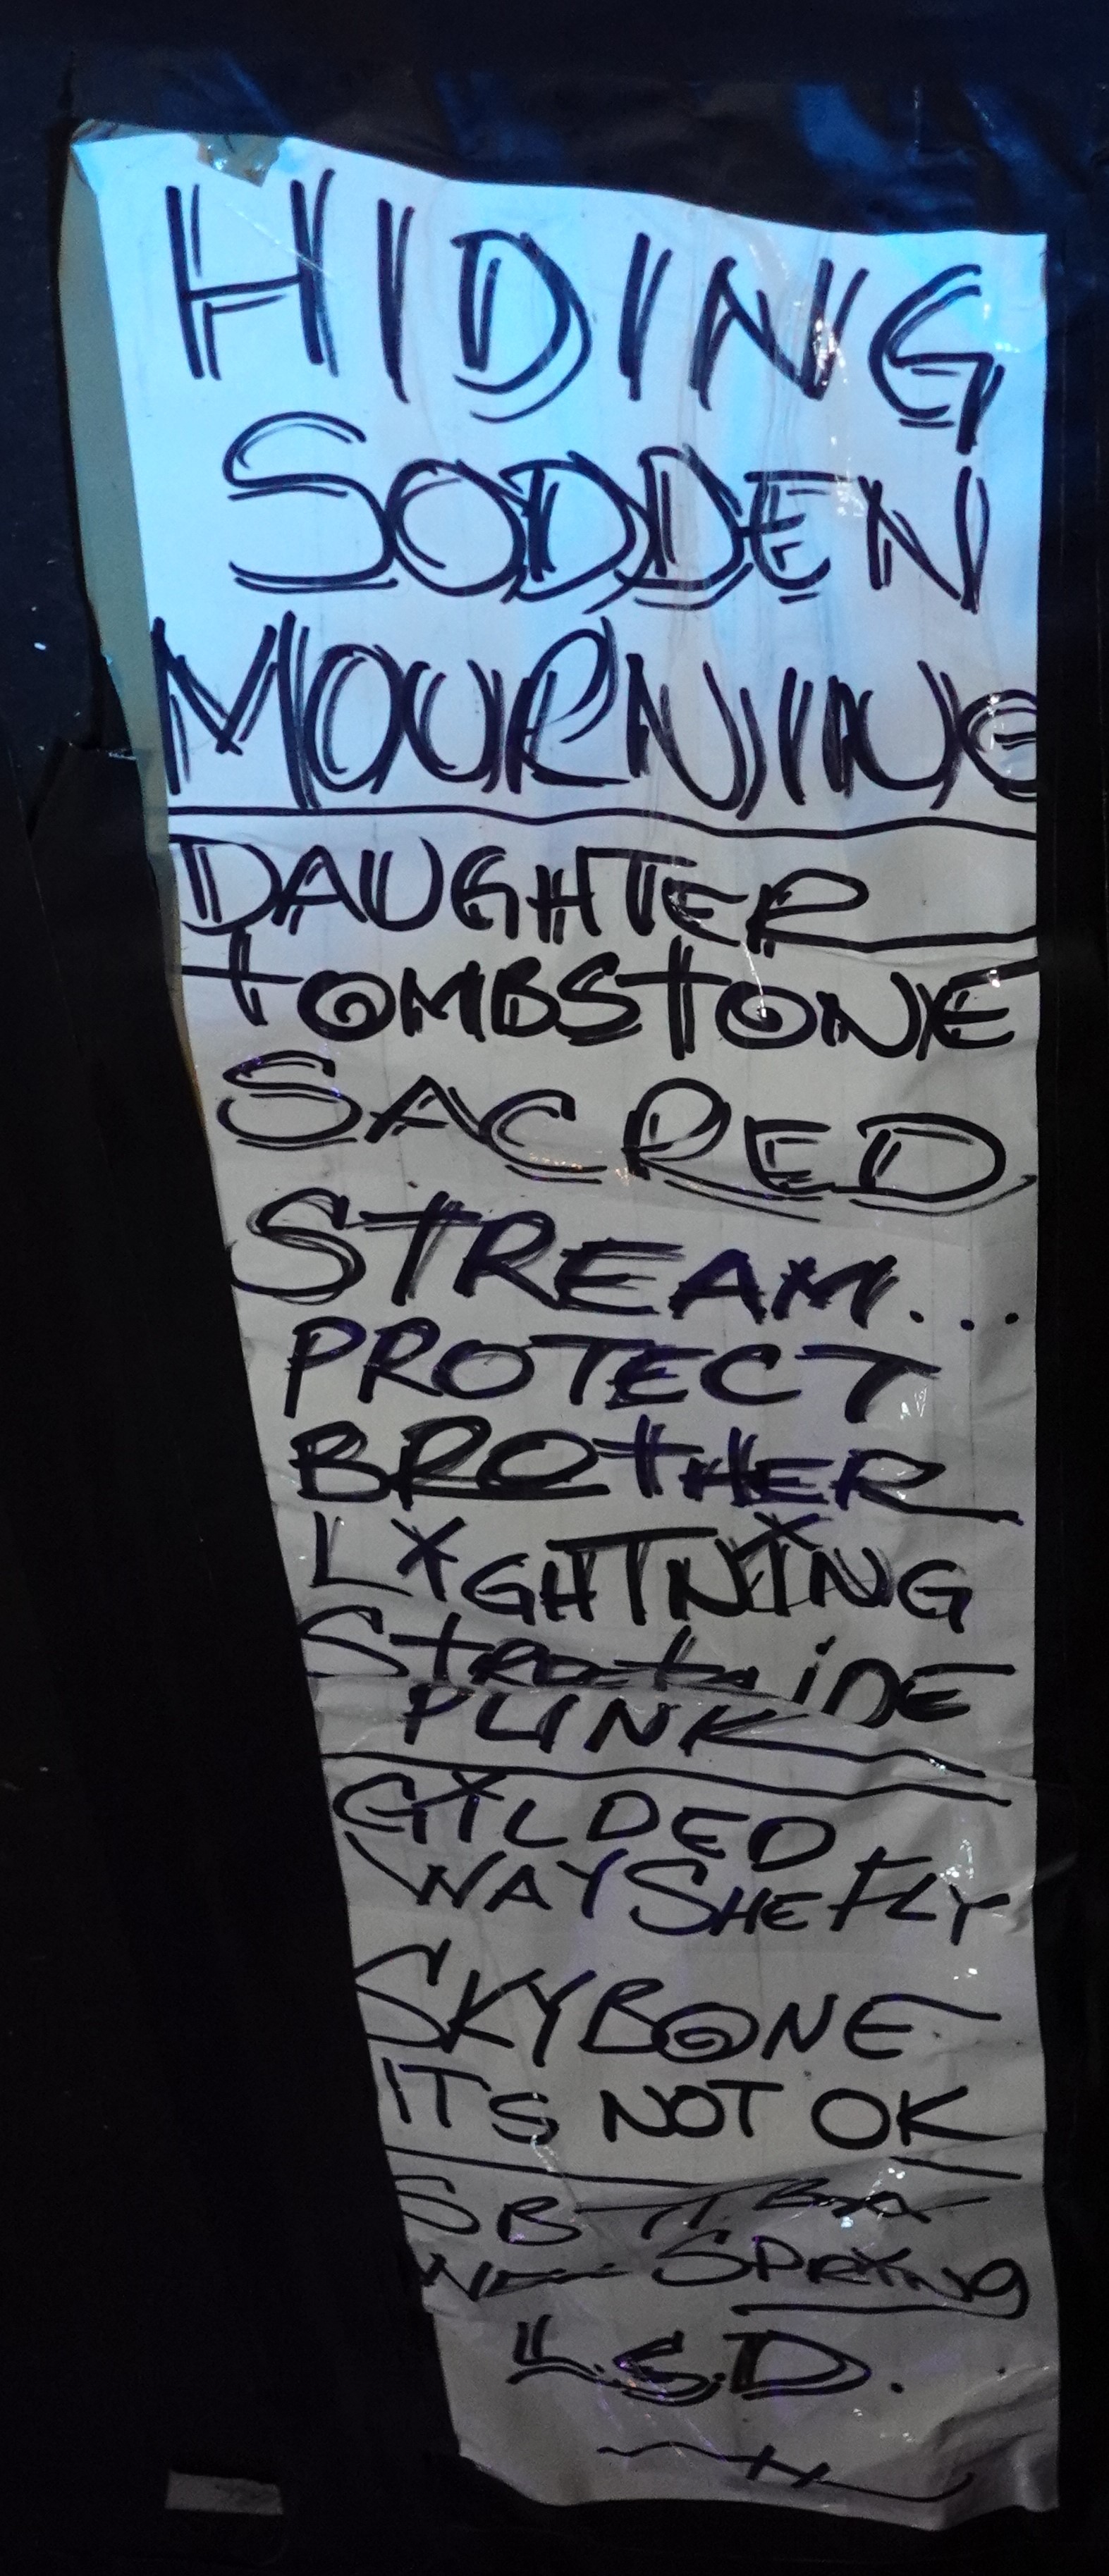 HIDING
SODDEN
MOURNING
DAUGHTER
TOMBSTONE
SACRED
STREAM...
PROTECT
BROTHER
LIGHTNING
iDE
PUNK
GILDED
WAY SHE FLY
SKYBONE
ITS NOT OK
SB
SPRING
L.S.D.